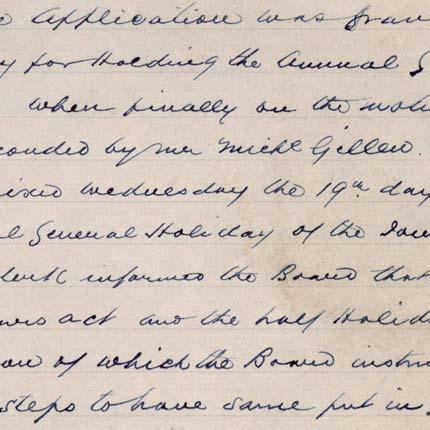 Application was gran
for Holding the Annual
when finally on the moti
conded by mr Michl Gillen.
ixed Wednesday the 19th day
l General Holiday of the Tow
Clerk informed the Board that
ners act and the half Holid
of which the Board instru
steps to have same put in